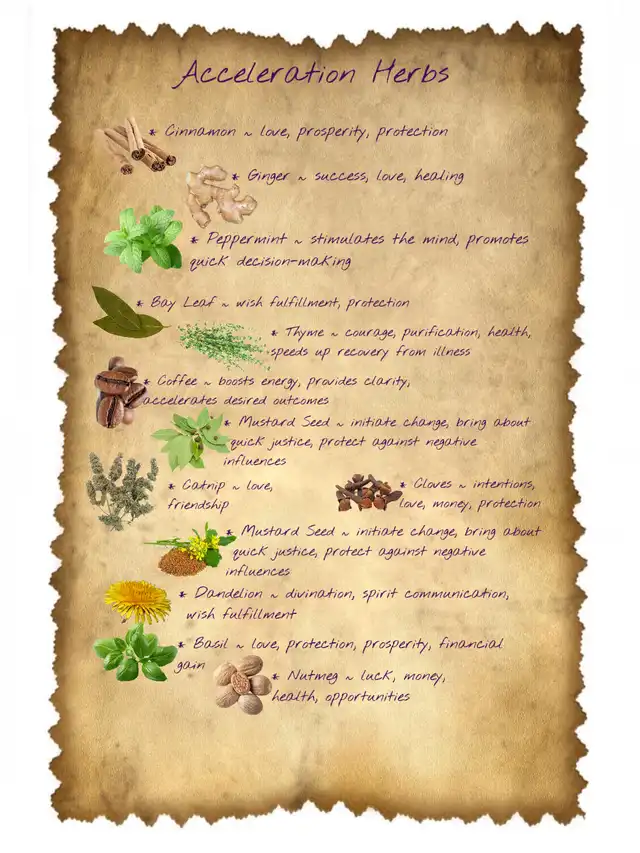 Acceleration Herbs
* Cinnamon ~ love, prosperity, protection
* Ginger ~ success, love, healing
* Peppermint ~ stimulates the mind, promotes
quick decision-making
* Bay Leaf ~ wish fulfillment, protection
* Thyme ~ courage, purification, health,
speeds up recovery from illness
* Coffee ~ boosts energy, provides clarity,
accelerates desired outcomes
* Mustard Seed ~ initiate change, bring about
quick justice, protect against negative
influences
* Catnip ~ love,
friendship
* Cloves ~ intentions,
love, money, protection
* Mustard Seed ~ initiate change, bring about
quick justice, protect against negative
influences
* Dandelion ~ divination, spirit communication,
wish fulfillment
* Basil ~ love, protection, prosperity, financial
gain
* Nutmeg ~ luck, money,
health, opportunities